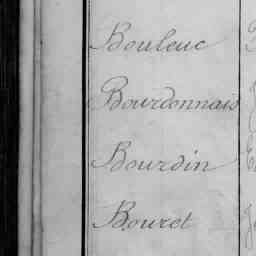 Bouleuc
Bourdonnais
Bourdin
Bouret